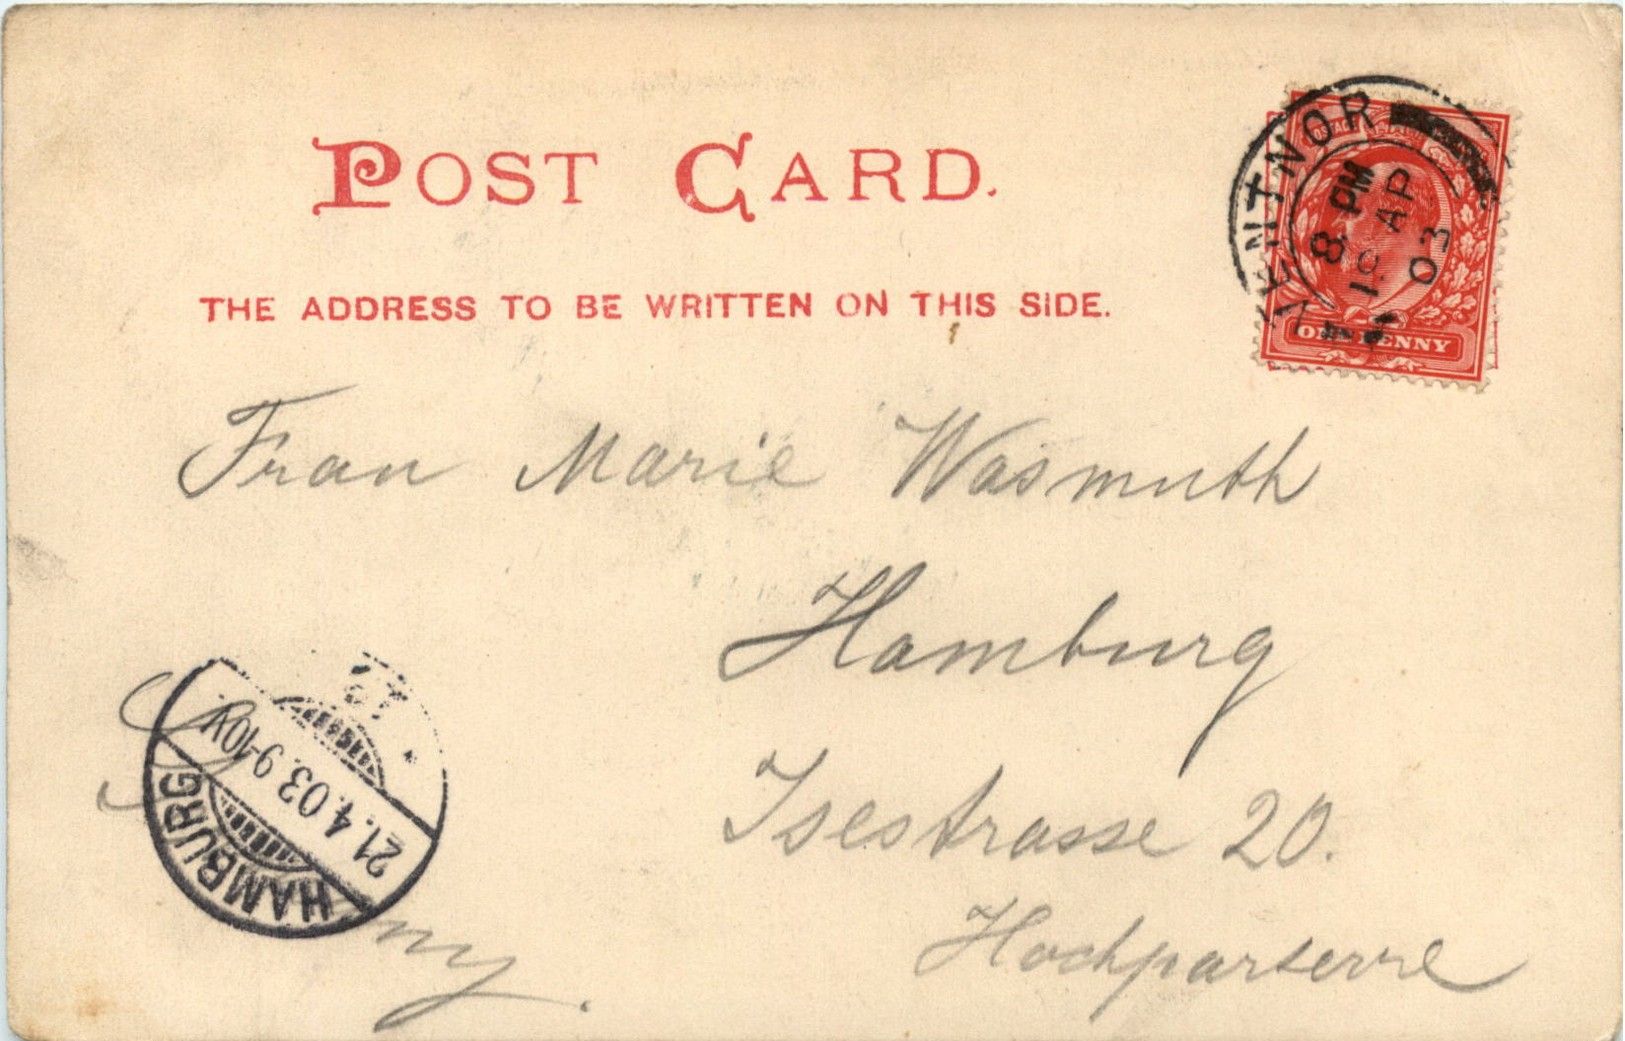 POST CARD.
THE ADDRESS TO BE WRITTEN ON THIS SIDE.
VENTNOR
8 PM
AP
03
ONE PENNY
Frau Marie Wasmuth
Hamburg
Isestrasse 20.
Hochparterre
HAMBURG
21.4.03. 9-10V.